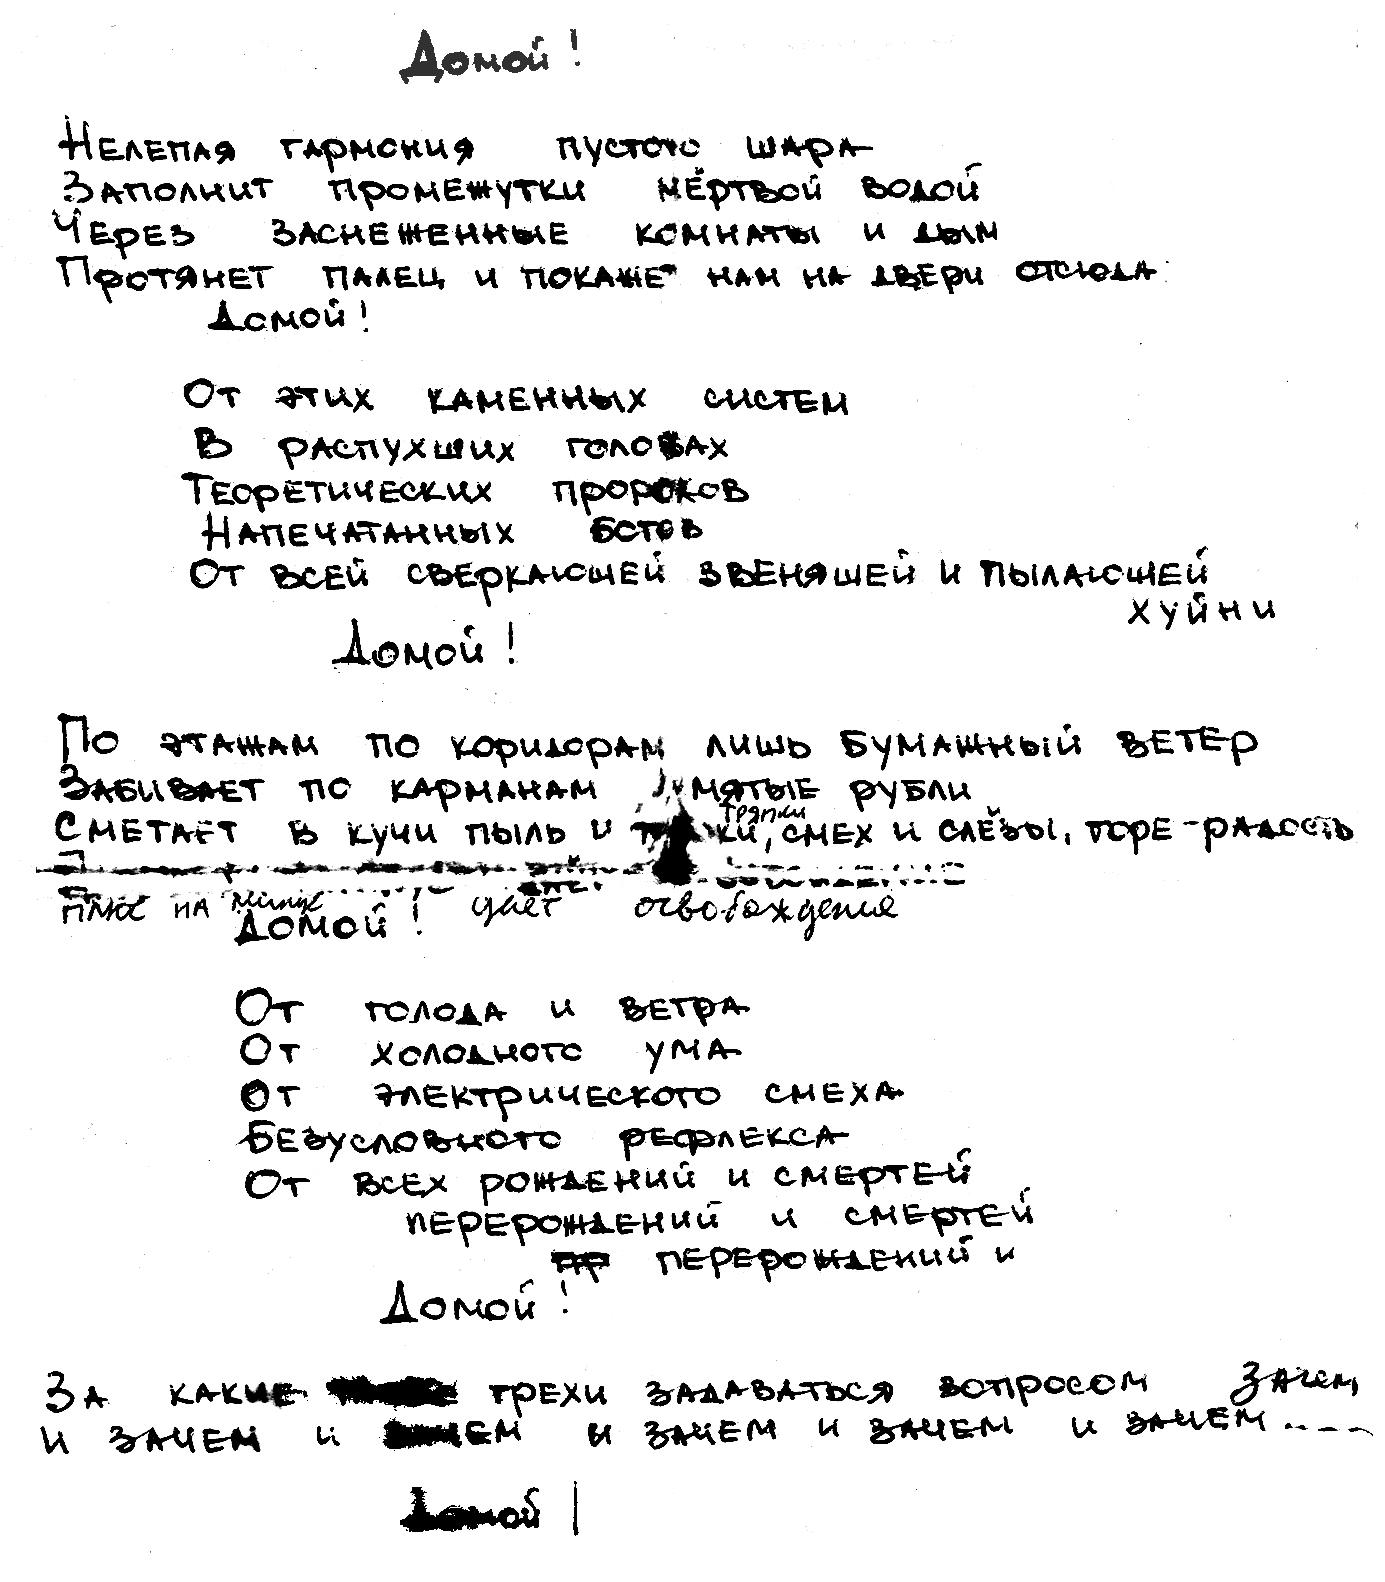 Домой!
Нелепая гармония пустого шара
Заполнит промежутки мёртвой водой
Через заснеженные комнаты и дым
Протянет палец и покажет нам на двери отсюда
Домой!
От этих каменных систем
В распухших головах
Теоретических пророков
Напечатанных богов
От всей сверкающей звенящей и пылающей
хуйни
Домой!
По этажам по коридорам лишь бумажный ветер
Забивает по карманам мятые рубли
тряпки
Сметает в кучи пыль и смех и слёзы, горе-радость
плюс на минус дает освобождение
Домой!
От голода и ветра
От холодного ума
От электрического смеха
Безусловного рефлекса
От всех рождений и смертей
перерождений и смертей
перерождений и
Домой!
За какие грехи задаваться вопросом Зачем
и зачем и зачем и зачем и зачем и зачем.....
Домой!